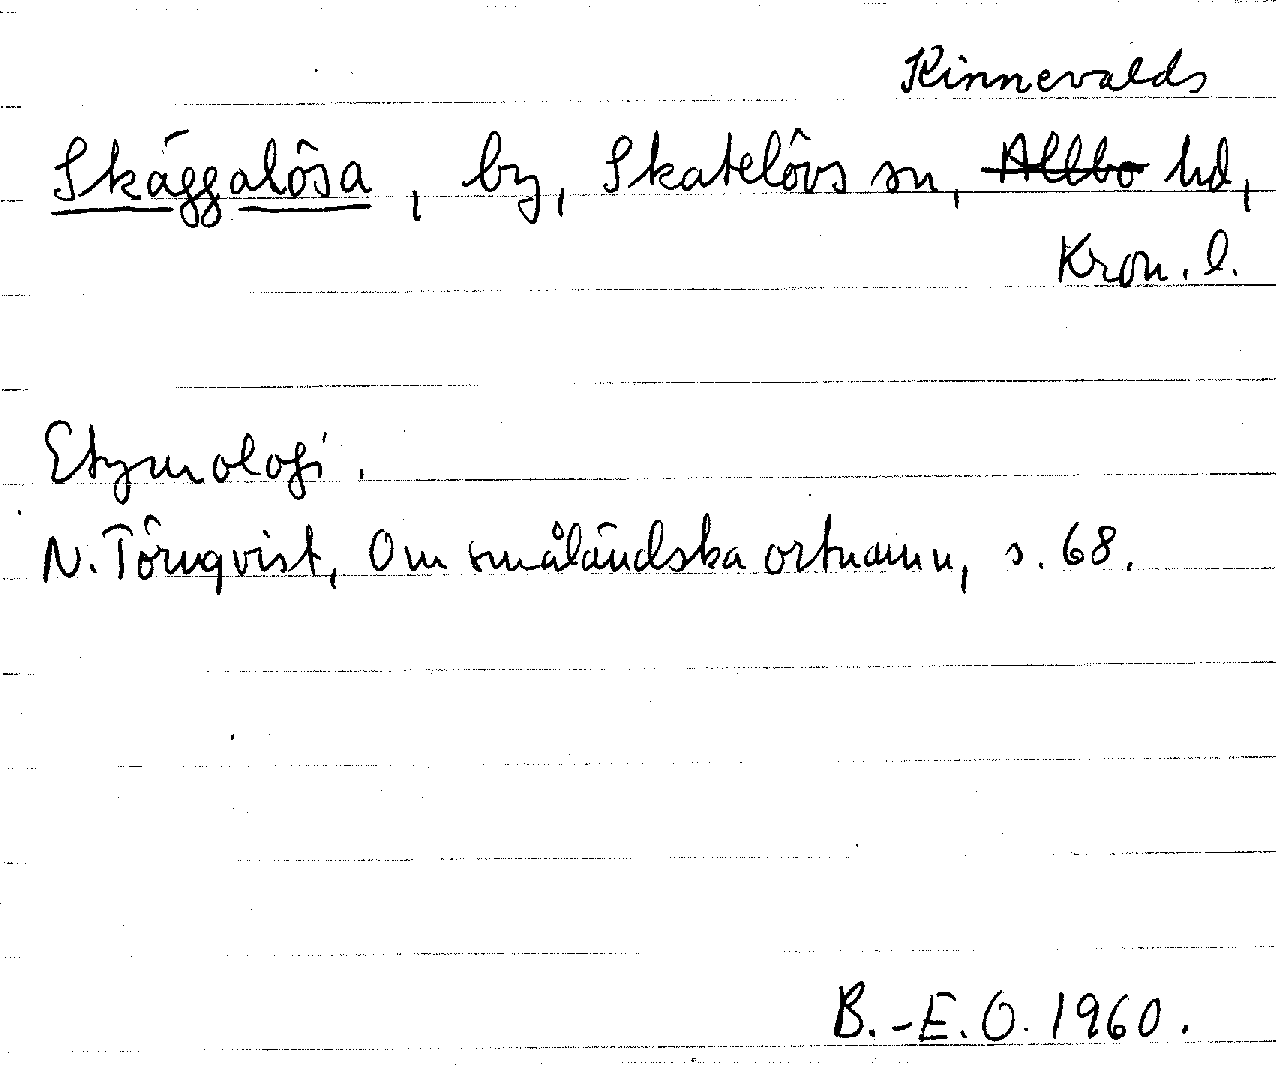 Kinnevalds
Skäggalösa, by, Skatelövs sn, Allbo hd,
Kron. l.
Etymologi.
N. Törnqvist, Om småländska ortnamn, s. 68.
B.-E. O. 1960.